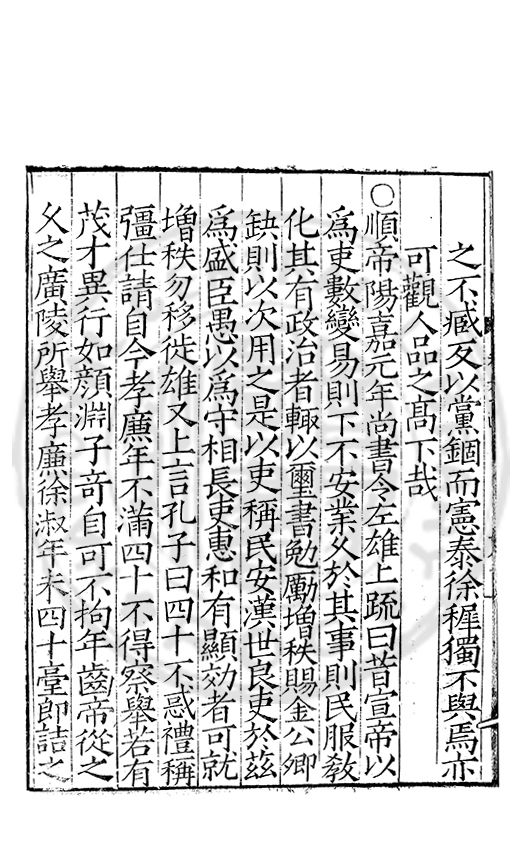 之不臧反以黨錮而憲泰徐穉獨不與焉亦
可觀人品之髙下哉
○順帝陽嘉元年尚書令左雄上疏曰昔宣帝以
爲吏數變易則下不安業乆於其事則民服敎
化其有政治者輙以璽書勉勵增秩賜金公卿
缺則以次用之是以吏稱民安漢世良吏於兹
爲盛臣愚以爲守相長吏惠和有顯効者可就
增秩勿移徙雄又上言孔子曰四十不惑禮稱
彊仕請自今孝廉年不滿四十不得察舉若有
茂才異行如顔淵子竒自可不拘年齒帝從之
乆之廣陵所舉孝廉徐淑年未四十臺郎詰之